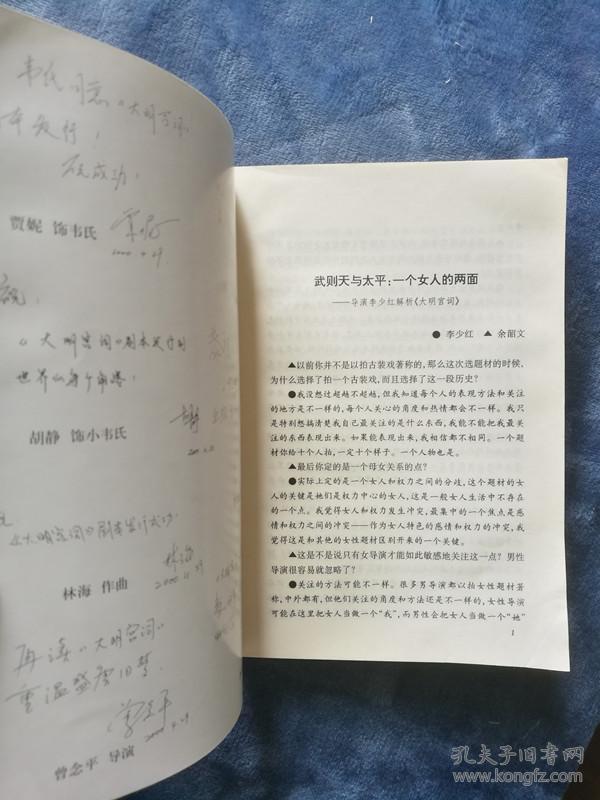 韦氏同意《大明宫词》
本发行！
祝成功！
贾妮 饰韦氏
2000.4.29
《大明宫词》剧本发行到
世界的每个角落.
胡静 饰小韦氏
《大明宫词》剧本发行成功.
林海
2000.4.29
林海 作曲
再读《大明宫词》
重温盛唐旧梦.
曾念平 导演
武则天与太平:一个女人的两面
——导演李少红解析《大明宫词》
● 李少红 ▲ 余韶文
▲以前你并不是以拍古装戏著称的,那么这次选题材的时候,
为什么选择了拍一个古装戏,而且选择了这一段历史?
●我没想过超越不超越,但我知道每个人的表现方法和关注
的地方是不一样的,每个人关心的角度和热情都会不一样。我只
是特别想搞清楚我自己最关注的是什么东西,我能不能把我最关
注的东西表现出来。如果能表现出来,我相信都不相同。一个题
材你给十个人拍,一定十个样子。一个人物也是。
▲最后你定的是一个母女关系的点?
●实际上定的是一个女人和权力之间的分歧,这个题材的女
人的关键是她们是权力中心的女人,这是一般女人生活中不存在
的一个点。我觉得女人和权力发生冲突,最集中的一个焦点是感
情和权力之间的冲突——作为女人特色的感情和权力的冲突,我
觉得这是和其他的女性题材区别开来的一个关键。
▲这是不是说只有女导演才能如此敏感地关注这一点?男性
导演很容易就忽略了?
●关注的方法可能不一样。很多男导演都以拍女性题材著
称,中外都有,但他们关注的角度和方法还是不一样的,女性导演
可能在这里把女人当做一个“我”,而男性会把女人当做一个“她”
1
孔夫子旧书网
www.kongfz.com